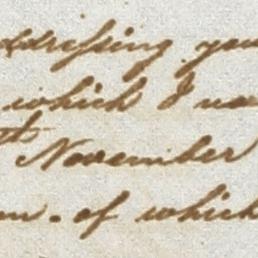 addressing you
which I was
th November
of which